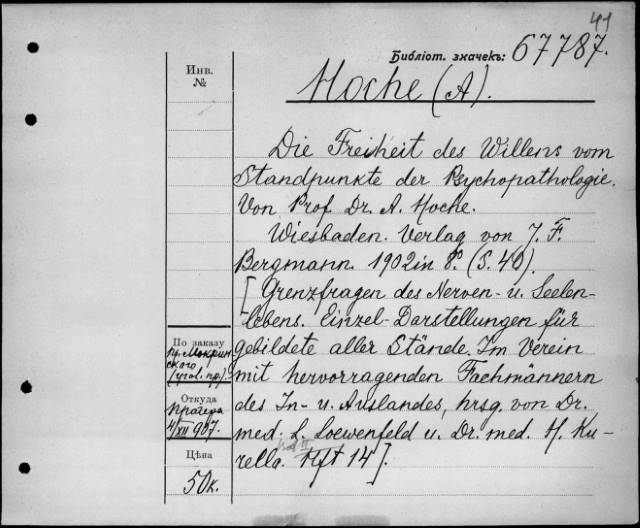 41
Библіот. значекъ: 67787.
Инв.
№
Hoche (A).
Die Freiheit des Willens vom
Standpunkte der Psychopathologie.
Von Prof. Dr. A. Hoche.
Wiesbaden. Verlag von J. F.
Bergmann. 1902 in 8º. (S. 40).
[Grenzfragen des Nerven- u. Seelen-
lebens. Einzel-Darstellungen für
gebildete aller Stände. Im Verein
mit hervorragenden Fachmännern
des In- u. Auslandes, hrsg. von Dr.
med. L. Loewenfeld u. Dr. med. H. Ku-
rella. Hft 14].
По заказу
пр. Мокрин
ского
(угол. пр.)
Откуда
4/XII 907.
Цѣна
50 к.